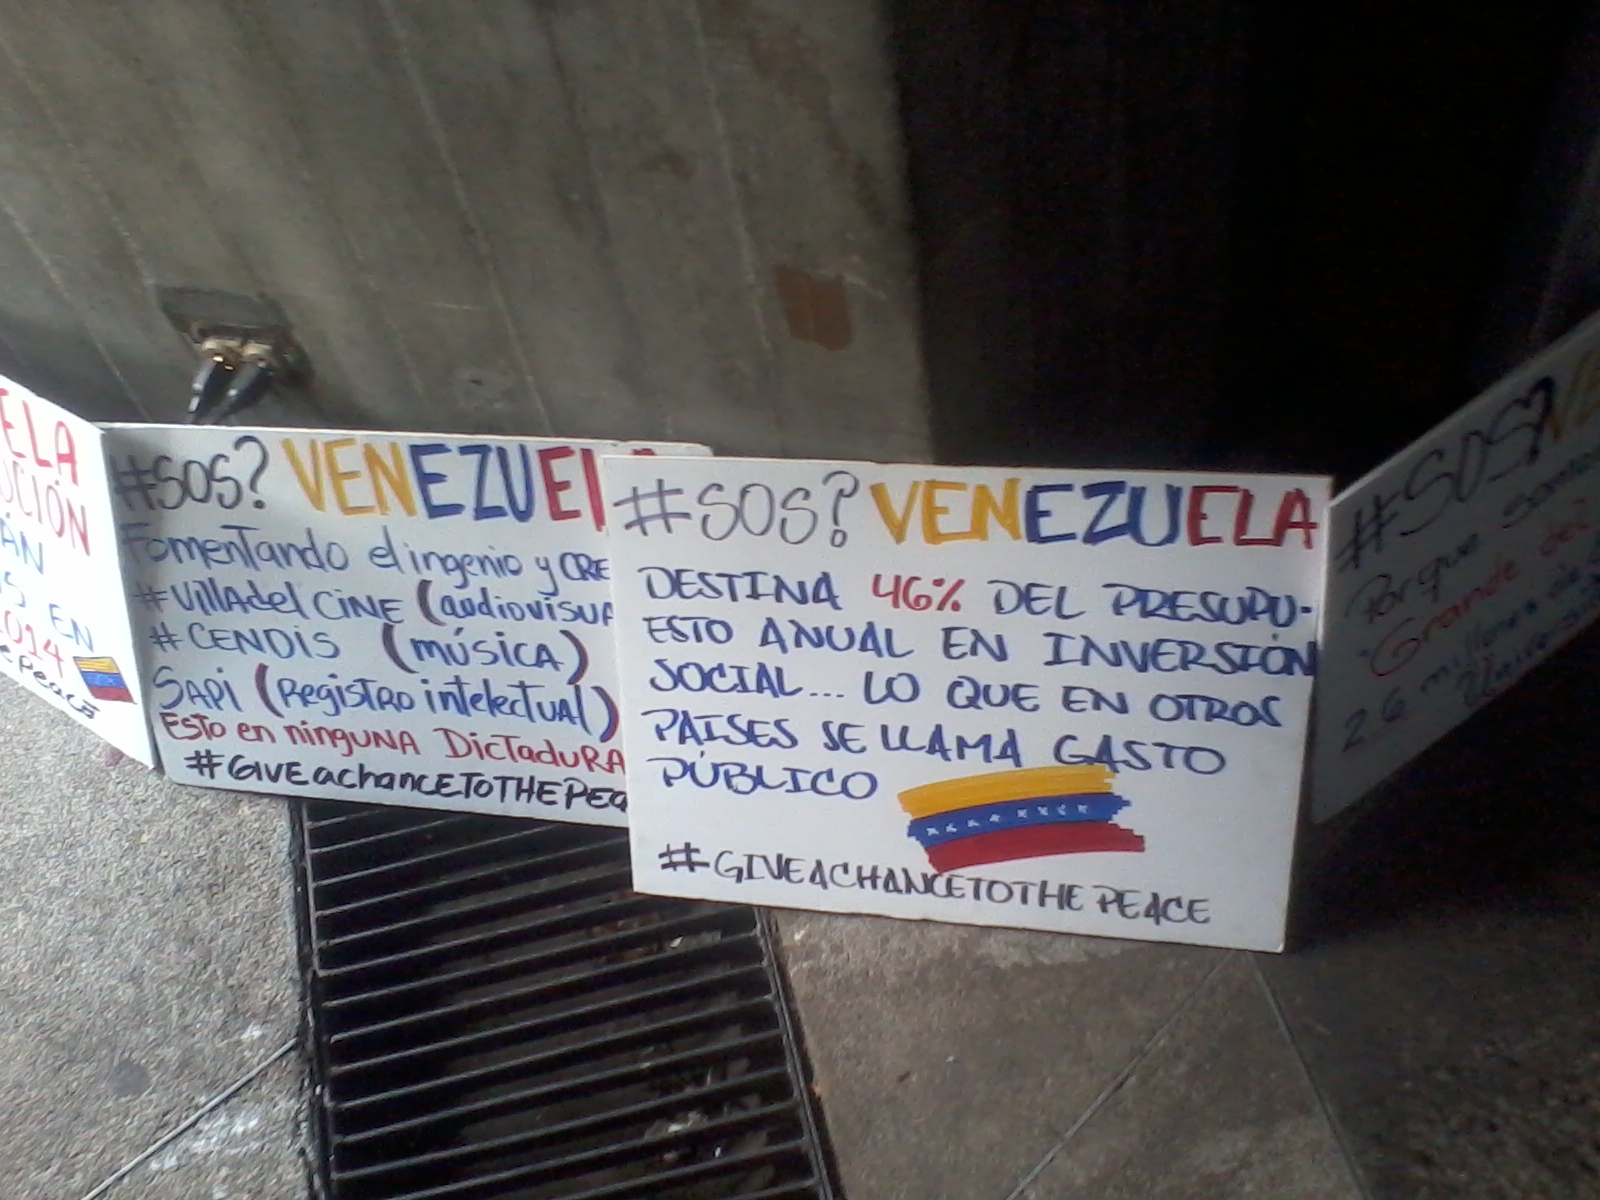 ELA
CIÓN
ÁN
S EN
2014
#SOS? VENEZUEL
Fomentando el ingenio y CRE
#VillAdel CiNE (audiovisua
#CENDIS (música)
SAPI (Registro intelectual)
Esto en ninguNA DictaduRA
#GiVEachanceToTHEPea
#SOS? VENEZUELA
DESTINA 46% DEL PRESUPU-
ESTO ANUAL EN INVERSIÓN
SOCIAL... LO QUE EN OTROS
PAISES SE LLAMA GASTO
PÚBLICO
#GIVEACHANCETOTHE PEACE
#SOS? VE
Porque somos
Grande del
26 millones de